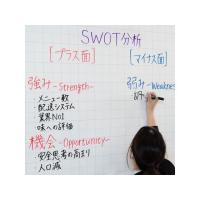 SWOT分析
[プラス面]
[マイナス面]
強み-Strength-
・メニュー数
・配送システム
・業界No1
・味への評価
弱み-Weakness
機会-Opportunity-
・安全思考の高まり
・人口減